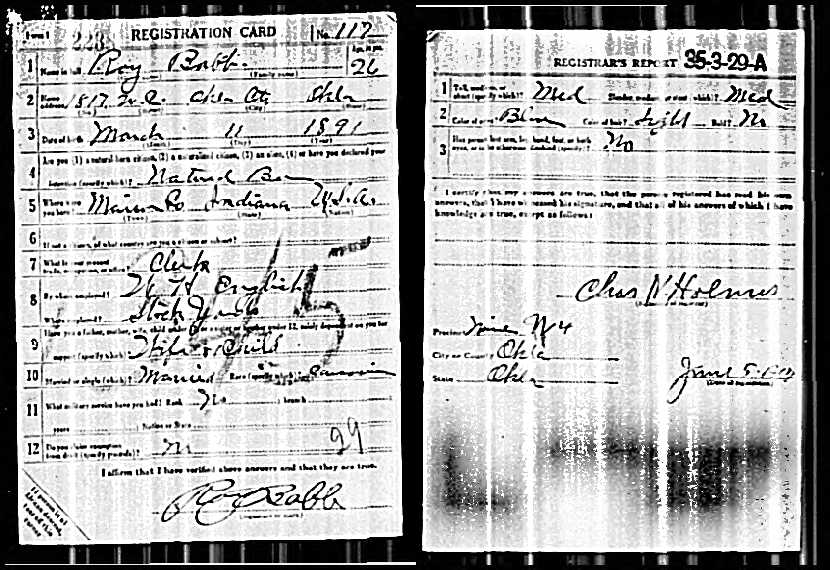 Form 1 223 REGISTRATION CARD No. 117
1 Name in full Roy Babb Age, in yrs. 26
(Family name)
2 Home address 1817 Okla City Okla
(No.) (Street) (City) (State)
3 Date of birth March 11 1891
(Month) (Day) (Year)
4 Are you (1) a natural born citizen, (2) a naturalized citizen, (3) an alien, (4) or have you declared your
intention (specify which)? Natural Born
5 Where were you born? Marion Co Indiana U.S.A.
(Town) (State) (Nation)
6 If not a citizen, of what country are you a citizen or subject?
7 What is your present trade, occupation, or office? Clerk
8 By whom employed? English
Where employed? Stock Yards
9 Have you a father, mother, wife, child under 12, or a sister or brother under 12, solely dependent on you for
support (specify which)? Wife & Child
10 Married or single (which)? Married Race (specify which)? Caucasian
11 What military service have you had? Rank branch
years Nation or State
12 Do you claim exemption from draft (specify grounds)? No
99
I affirm that I have verified above answers and that they are true.
Roy Babb
REGISTRAR'S REPORT 35-3-29-A
1 Tall, medium, or short (specify which)? Med Slender, medium, or stout (which)? Med
2 Color of eyes? Blue Color of hair? Light Bald? No
3 Has person lost arm, leg, hand, foot, or both eyes, or is he otherwise disabled (specify)? No
I certify that my answers are true, that the person registered has read his own
answers, that I have witnessed his signature, and that all of his answers of which I have
knowledge are true, except as follows:
Chas N Holmes
Precinct
City or County Okla
State Okla June 5-1917
(Date of registration)